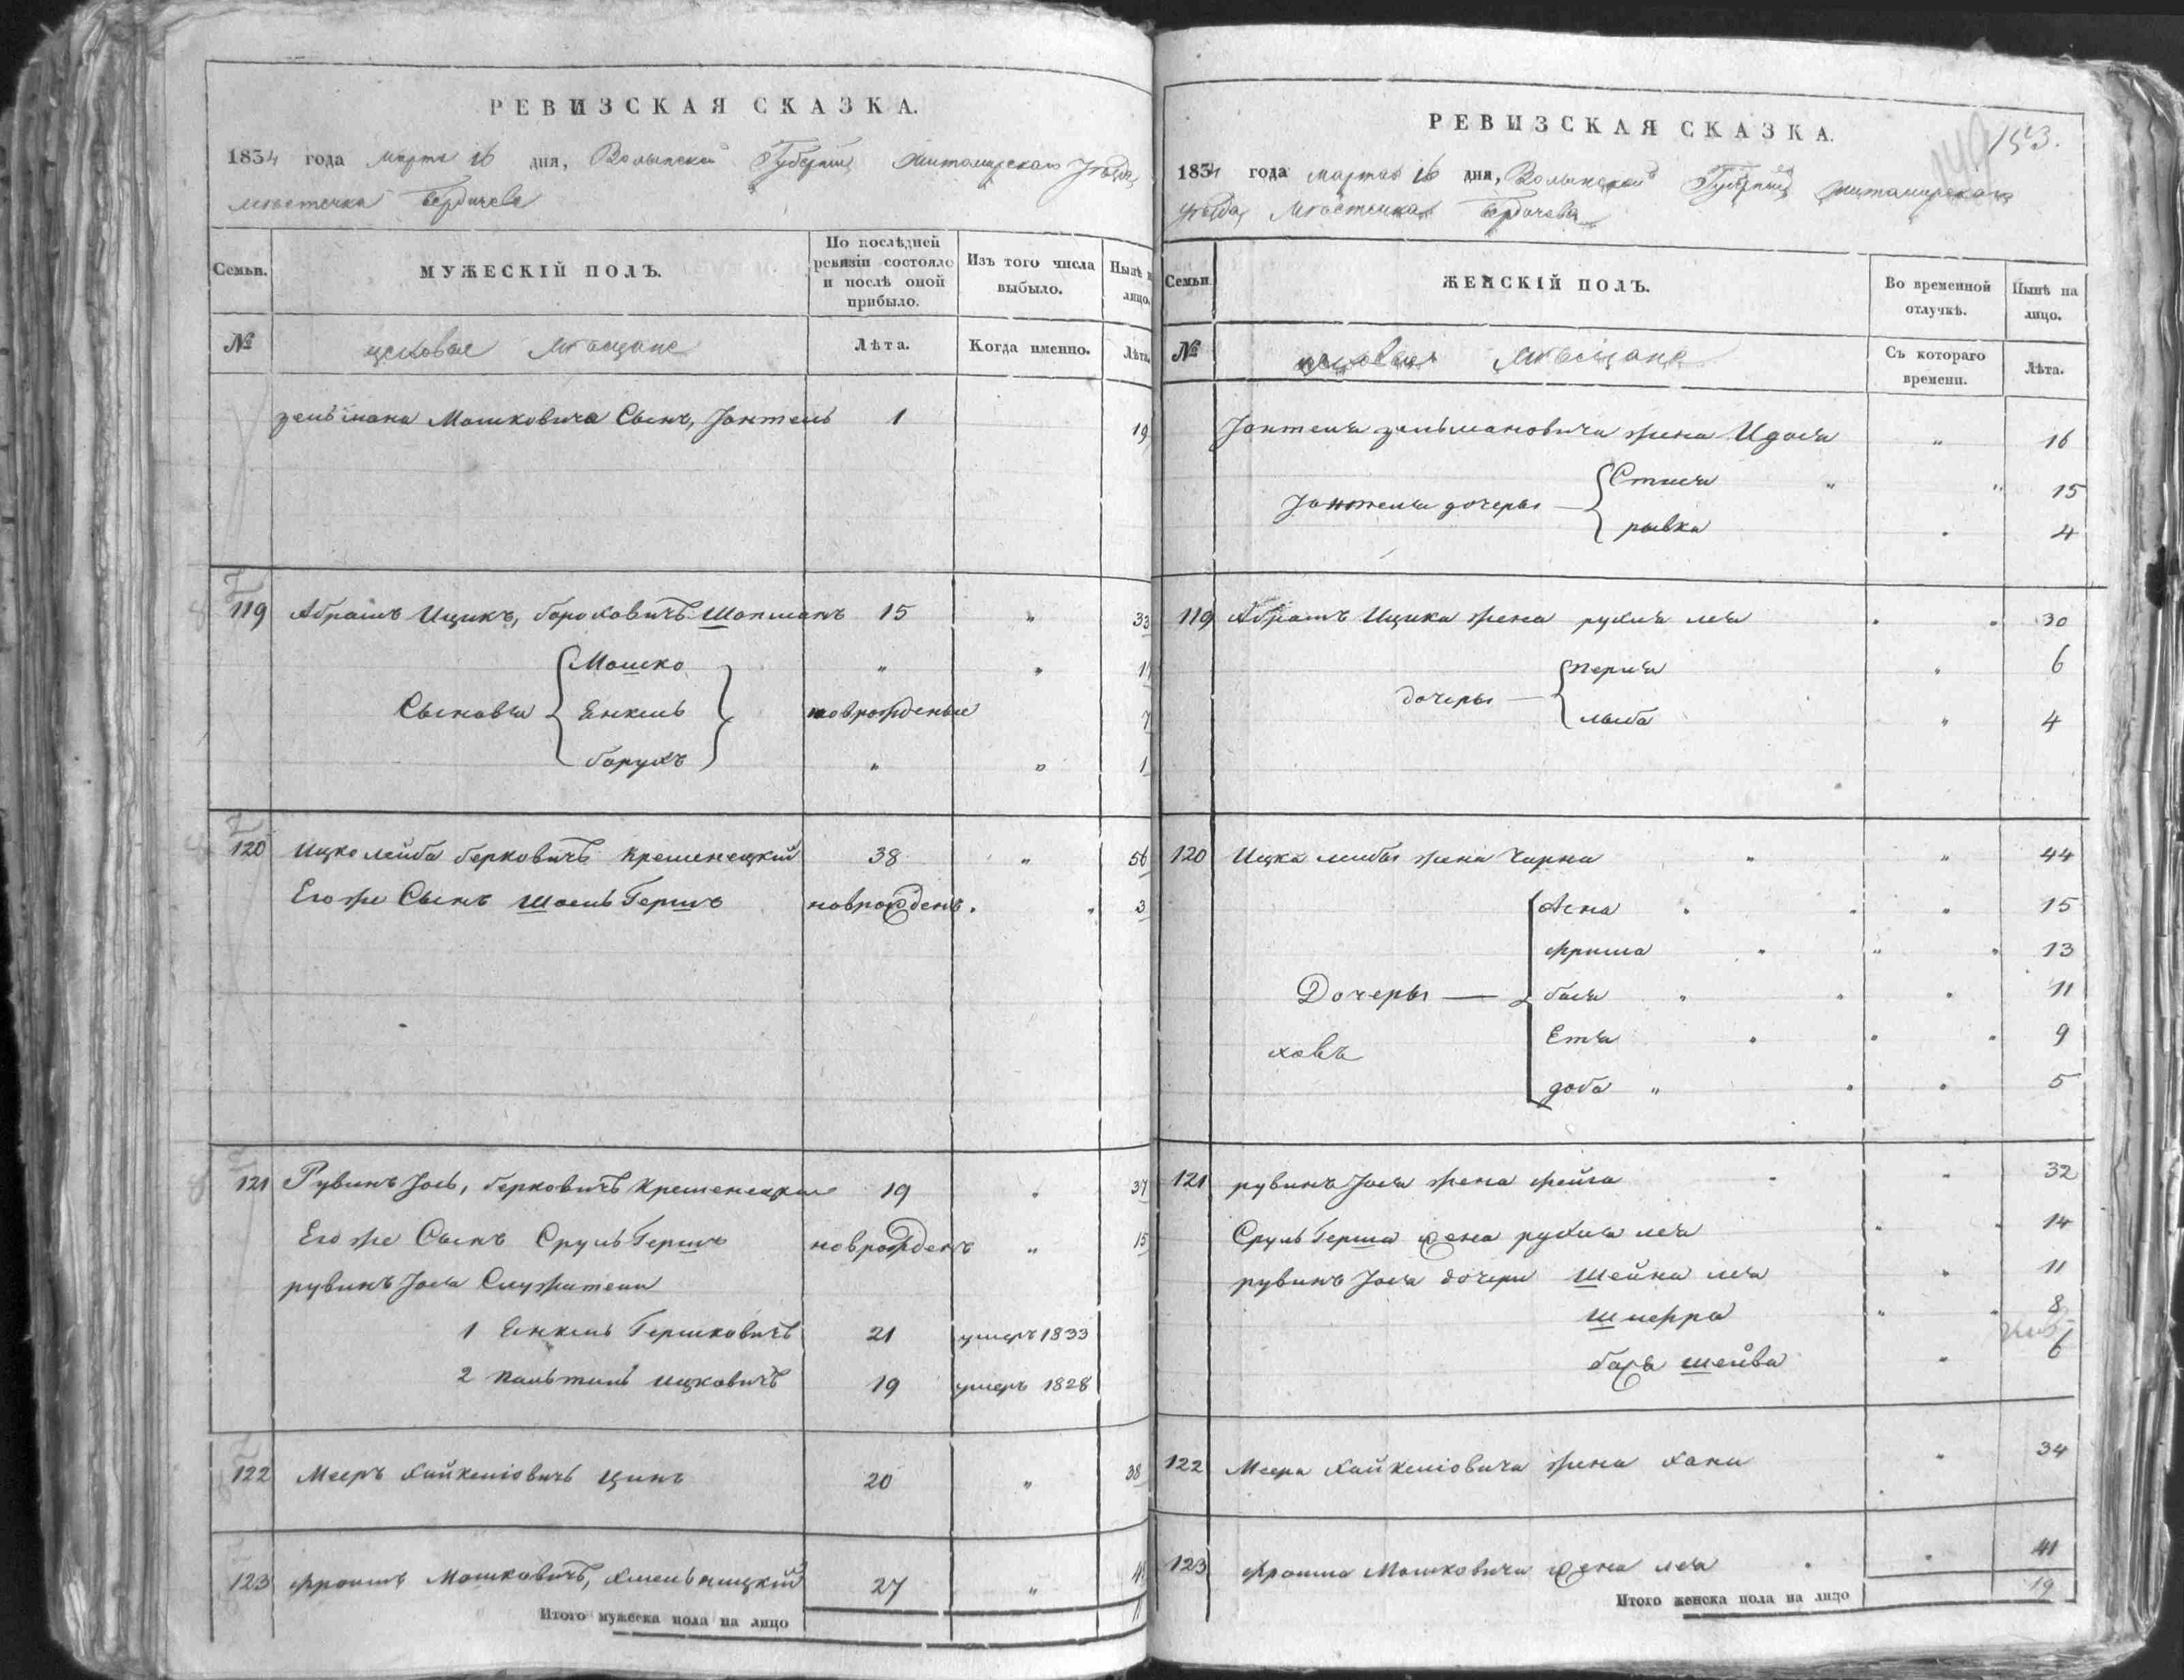 РЕВИЗСКАЯ СКАЗКА.
1834 года марта 16 дня, Волынской Губернии Житомирскаго Уѣзда
мѣстечка Бердичева
Семьи.
МУЖЕСКІЙ ПОЛЪ.
По послѣдней ревизіи состояло и послѣ оной прибыло.
Изъ того числа выбыло.
Нынѣ н лицо.
№
цеховые мѣщане
Лѣта.
Когда именно.
Лѣта.
зельмана Мошковича Сынъ, Јонтель 1 19
119 Абрамъ Ицикъ, бороховичъ Шопманъ 15 " 33
Мошко " "
Сыновья Енкель новрожденые 7
борухъ " " 1
120 Ицко лейба берковичъ кременецкій 38 " 56
Его же Сынъ Шоель Гершъ новрожденъ. " 3
121 Рувинъ Јось, берковичъ Кременецкій 19 " 37
Его же Сынъ Сруль Гершъ новрожденъ " 15
рувинъ Јося Служители
1 Енкель Гершковичъ 21 умеръ 1833
2 пальтиль ицковичъ 19 умеръ 1828
122 Мееръ хайкеліовичъ цинъ 20 " 38
123 Фроимъ Мошковичъ, хмельницкій 27 "
Итого мужеска пола на лицо 11
РЕВИЗСКАЯ СКАЗКА.
153.
1834 года марта 16 дня, Волынской Губерніи Житомирскаго
Уѣзда Мѣстечка Бердичева
Семьи
ЖЕНСКІЙ ПОЛЪ.
Во временной отлучкѣ.
Нынѣ на лицо.
№
цеховыя Мѣщане
Съ котораго времени.
Лѣта.
Јонтеля зельмановича жена Идося " 16
Стися " " 15
Јонтеля дочеры
рывка " 4
119 Абрамъ Ицика жена рухля лея " " 30
перля " 6
дочеры
лыба " 4
120 Ицка лейбы жена Чарна " " 44
Асна " " " 15
Фрима " " " 13
Дочеры бася " " " 11
ховъ Етя " " " 9
доба " " " 5
121 рувинъ Јося жена фейга " " 32
Сруль Герша жена рухля лея " " 14
рувинъ Јося дочери Шейна лея " 11
Шифра " " 8
бася шейва " 6
122 Меера хайкеліовича жена хана " 34
123 Фроима Мошковича жена лея " " 41
Итого женска пола на лицо 19